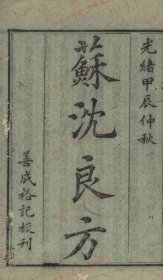 光緒甲辰仲秋
蘇沈良方
善成裕記校刊